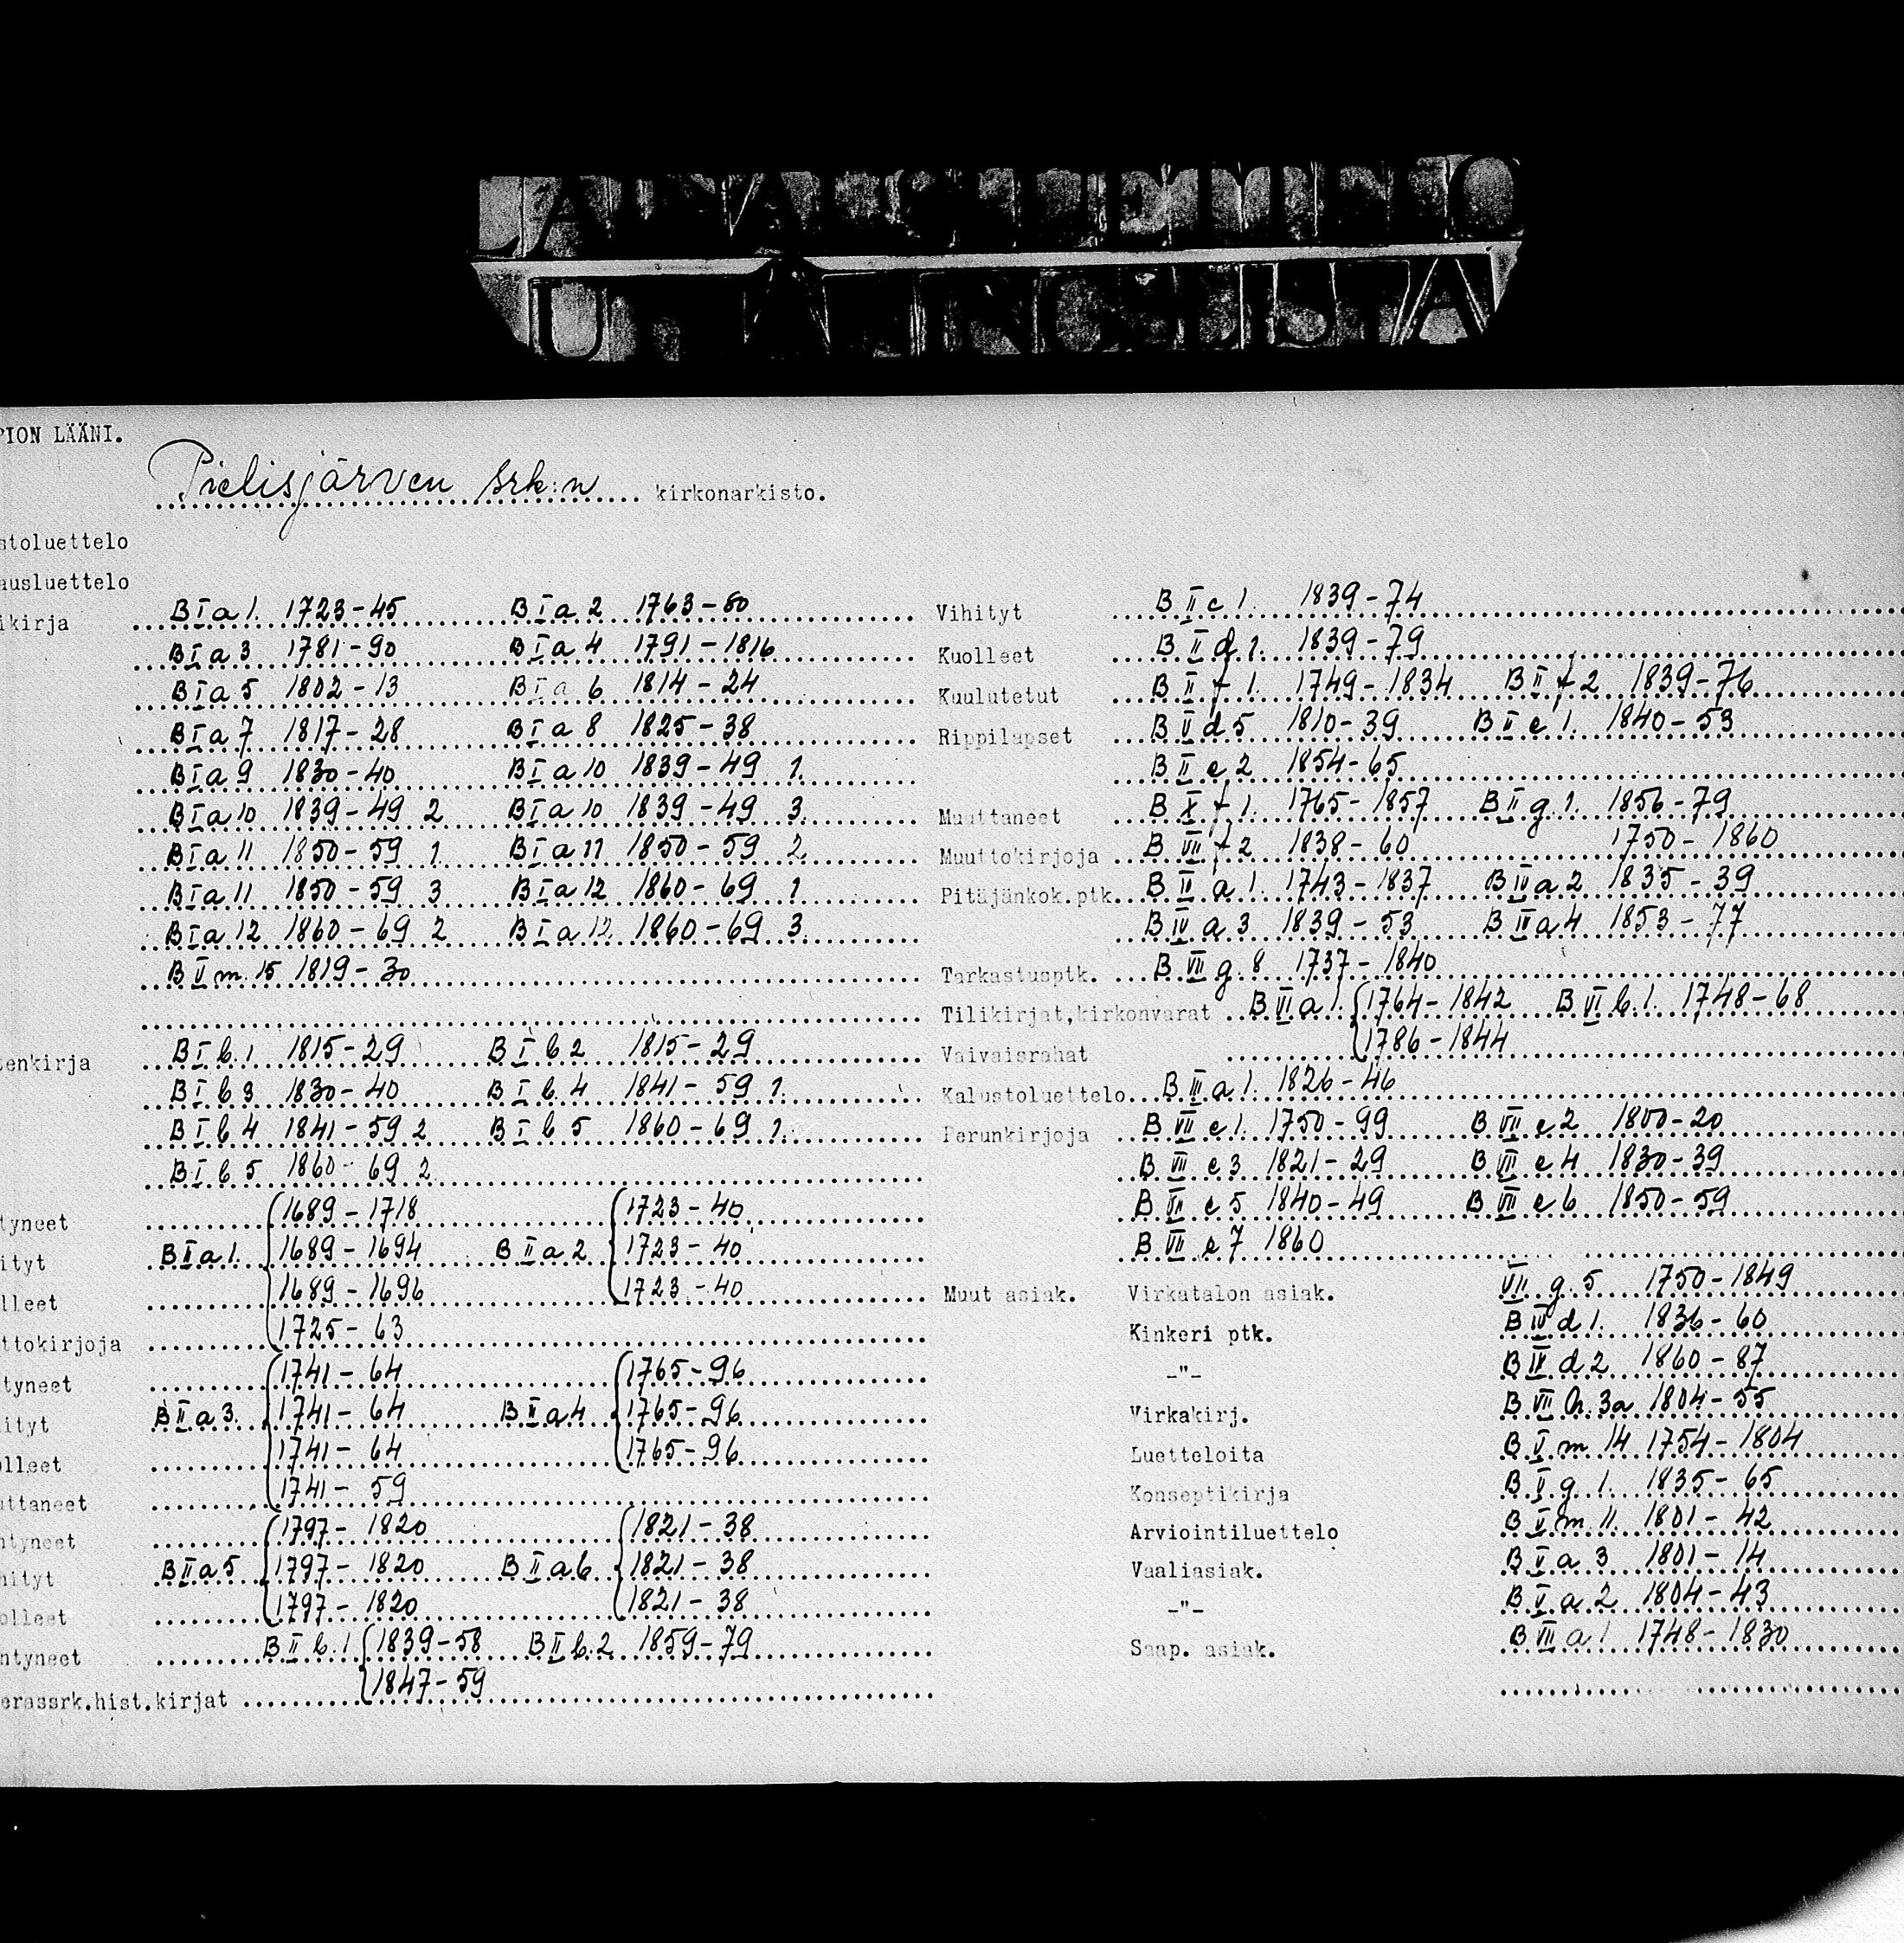 PION LÄÄNI.
Pielisjärven srk:n kirkonarkisto.
stoluettelo
ausluettelo
ikirja B I a 1. 1723-45 B I a 2 1763-80
B I a 3 1781-90 B I a 4 1791-1816
B I a 5 1802-13 B I a 6 1814-24
B I a 7 1817-28 B I a 8 1825-38
B I a 9 1830-40 B I a 10 1839-49 1.
B I a 10 1839-49 2 B I a 10 1839-49 3.
B I a 11 1850-59 1. B I a 11 1850-59 2.
B I a 11 1850-59 3 B I a 12 1860-69 1
B I a 12 1860-69 2 B I a 12 1860-69 3.
B V m. 15 1819-30
tenkirja B I b. 1 1815-29 B I b 2 1815-29
B I b 3 1830-40 B I b. 4 1841-59 1.
B I b 4 1841-59 2 B I b 5 1860-69 1.
B I b 5 1860-69 2
tyneet 1689-1718 1723-40
ityt B II a 1. 1689-1694 B II a 2 1723-40
lleet 1689-1696 1723-40
ttokirjoja 1725-63
tyneet 1741-64 1765-96
ityt B II a 3. 1741-64 B II a 4 1765-96
olleet 1741-64 1765-96
uttaneet 1741-59
ntyneet 1797-1820 1821-38
hityt B II a 5 1797-1820 B II a 6 1821-38
olleet 1797-1820 1821-38
ntyneet B II b. 1 1839-58 B II b. 2 1859-79
erassrk.hist.kirjat 1847-59
Vihityt B II c 1. 1839-74
Kuolleet B II d 1. 1839-79
Kuulutetut B II f 1. 1749-1834 B II f 2 1839-76
Rippilapset B V d 5 1810-39 B II e 1. 1840-53
B II e 2 1854-65
Muuttaneet B X f 1. 1765-1857 B II g. 1. 1856-79
Muuttokirjoja B VII f 2 1838-60 1750-1860
Pitäjänkok.ptk. B IV a 1. 1743-1837 B IV a 2 1835-39
B IV a 3 1839-53 B IV a 4 1853-77
Tarkastusptk. B VII g. 8 1737-1840
Tilikirjat,kirkonvarat B VI a 1. 1764-1842 B VI b. 1. 1748-68
Vaivaisrahat 1786-1844
Kalustoluettelo B III a 1. 1826-46
Perunkirjoja B VII e 1. 1750-99 B VII e 2 1800-20
B VII e 3 1821-29 B VII e 4 1830-39
B VII e 5 1840-49 B VII e 6 1850-59
B VII e 7 1860
Muut asiak. Virkatalon asiak. VII g. 5 1750-1849
Kinkeri ptk. B IV d 1. 1836-60
-"- B IV d 2 1860-87
Virkakirj. B VII h. 3a 1804-55
Luetteloita B V m 14 1754-1804
Konseptikirja B V g. 1. 1835-65
Arviointiluettelo B V m. 11. 1801-42
Vaaliasiak. B V a 3 1801-14
-"- B V a 2 1804-43
Saap. asiak. B VIII a 1 1748-1830